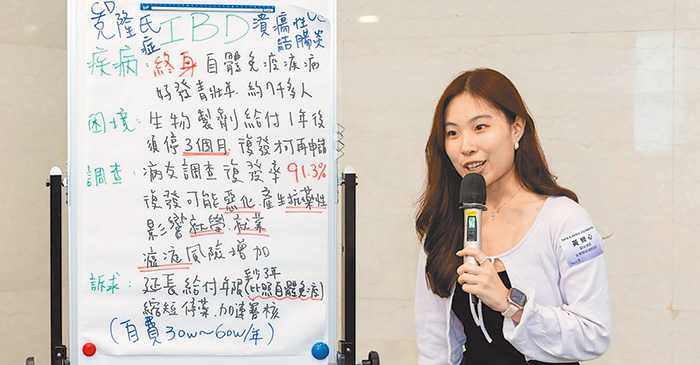 CD
克隆氏症 IBD 潰瘍性結腸炎 UC
疾病：終身自體免疫疾病
好發青壯年、約7千多人
困境：生物製劑給付1年後
須停3個月、復發才可再申請
調查：病友調查復發率91.3%
復發可能惡化、產生抗藥性
影響就學.就業
癌症風險增加
訴求：延長給付年限至少3年(比照自體免疫)
縮短停藥、加速審核
(自費30w~60w/年)